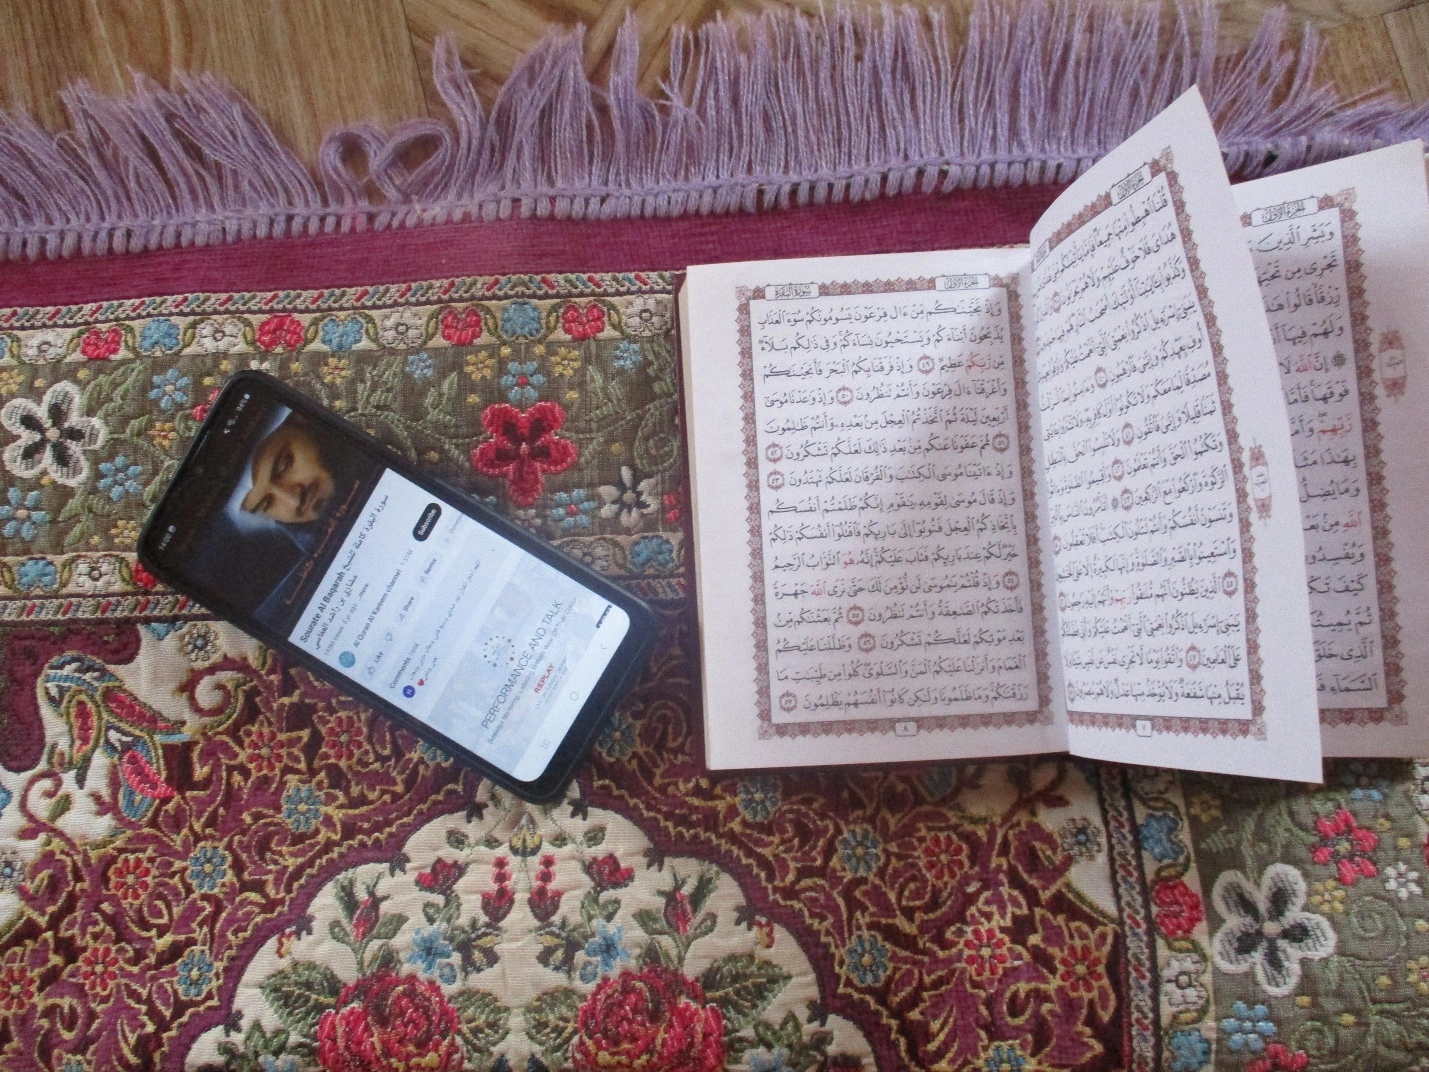 14:00
سورة البقرة كاملة للشيخ
Sourate Al Baqarah
مشاري بن راشد العفاسي
...more
Al Quran Al Kareem channel
Subscribe
Like
Share
Remix
Comments
PERFORMANCE AND TALK
REPLAY
الجزء الأول
وَبَشِّرِ ٱلَّذِينَ
تَجْرِى مِن تَحْتِ
رِّزْقًا قَالُوا۟ هَٰذَا
وَلَهُمْ فِيهَآ
إِنَّ ٱللَّهَ لَا
فَوْقَهَا فَأَمَّا
رَّبِّهِمْ وَأَمَّا
بِهَٰذَا مَثَلًا
وَمَا يُضِلُّ
ٱللَّهِ مِنۢ بَعْدِ
وَيُفْسِدُونَ
كَيْفَ تَكْ
ثُمَّ يُمِيتُ
ٱلَّذِى خَلَقَ
ٱلسَّمَآءِ فَ
الجزء الأول
قُلْنَا ٱهْبِطُوا۟ مِنْهَا جَمِيعًا فَإِمَّا يَأْتِيَنَّكُم مِّنِّى هُدًى فَمَن تَبِعَ
هُدَاىَ فَلَا خَوْفٌ عَلَيْهِمْ وَلَا هُمْ يَحْزَنُونَ ٣٨ وَٱلَّذِينَ كَفَرُوا۟
وَكَذَّبُوا۟ بِـَٔايَٰتِنَآ أُو۟لَٰٓئِكَ أَصْحَٰبُ ٱلنَّارِ هُمْ فِيهَا خَٰلِدُونَ ٣٩
يَٰبَنِىٓ إِسْرَٰٓءِيلَ ٱذْكُرُوا۟ نِعْمَتِىَ ٱلَّتِىٓ أَنْعَمْتُ عَلَيْكُمْ وَأَوْفُوا۟ بِعَهْدِىٓ
أُوفِ بِعَهْدِكُمْ وَإِيَّٰىَ فَٱرْهَبُونِ ٤٠ وَءَامِنُوا۟ بِمَآ أَنزَلْتُ
مُصَدِّقًا لِّمَا مَعَكُمْ وَلَا تَكُونُوٓا۟ أَوَّلَ كَافِرٍۭ بِهِۦ وَلَا تَشْتَرُوا۟ بِـَٔايَٰتِى
ثَمَنًا قَلِيلًا وَإِيَّٰىَ فَٱتَّقُونِ ٤١ وَلَا تَلْبِسُوا۟ ٱلْحَقَّ بِٱلْبَٰطِلِ
وَتَكْتُمُوا۟ ٱلْحَقَّ وَأَنتُمْ تَعْلَمُونَ ٤٢ وَأَقِيمُوا۟ ٱلصَّلَوٰةَ وَءَاتُوا۟
ٱلزَّكَوٰةَ وَٱرْكَعُوا۟ مَعَ ٱلرَّٰكِعِينَ ٤٣ أَتَأْمُرُونَ ٱلنَّاسَ بِٱلْبِرِّ
وَتَنسَوْنَ أَنفُسَكُمْ وَأَنتُمْ تَتْلُونَ ٱلْكِتَٰبَ أَفَلَا تَعْقِلُونَ ٤٤
وَٱسْتَعِينُوا۟ بِٱلصَّبْرِ وَٱلصَّلَوٰةِ وَإِنَّهَا لَكَبِيرَةٌ إِلَّا عَلَى ٱلْخَٰشِعِينَ
٤٥ ٱلَّذِينَ يَظُنُّونَ أَنَّهُم مُّلَٰقُوا۟ رَبِّهِمْ وَأَنَّهُمْ إِلَيْهِ رَٰجِعُونَ ٤٦
يَٰبَنِىٓ إِسْرَٰٓءِيلَ ٱذْكُرُوا۟ نِعْمَتِىَ ٱلَّتِىٓ أَنْعَمْتُ عَلَيْكُمْ وَأَنِّى فَضَّلْتُكُمْ
عَلَى ٱلْعَٰلَمِينَ ٤٧ وَٱتَّقُوا۟ يَوْمًا لَّا تَجْزِى نَفْسٌ عَن نَّفْسٍ شَيْـًٔا وَلَا
يُقْبَلُ مِنْهَا شَفَٰعَةٌ وَلَا يُؤْخَذُ مِنْهَا عَدْلٌ وَلَا هُمْ يُنصَرُونَ ٤٨
٧
الجزء الأول
سورة البقرة
وَإِذْ نَجَّيْنَٰكُم مِّنْ ءَالِ فِرْعَوْنَ يَسُومُونَكُمْ سُوٓءَ ٱلْعَذَابِ
يُذَبِّحُونَ أَبْنَآءَكُمْ وَيَسْتَحْيُونَ نِسَآءَكُمْ وَفِى ذَٰلِكُم بَلَآءٌ
مِّن رَّبِّكُمْ عَظِيمٌ ٤٩ وَإِذْ فَرَقْنَا بِكُمُ ٱلْبَحْرَ فَأَنجَيْنَٰكُمْ
وَأَغْرَقْنَآ ءَالَ فِرْعَوْنَ وَأَنتُمْ تَنظُرُونَ ٥٠ وَإِذْ وَٰعَدْنَا مُوسَىٰٓ
أَرْبَعِينَ لَيْلَةً ثُمَّ ٱتَّخَذْتُمُ ٱلْعِجْلَ مِنۢ بَعْدِهِۦ وَأَنتُمْ ظَٰلِمُونَ
٥١ ثُمَّ عَفَوْنَا عَنكُم مِّنۢ بَعْدِ ذَٰلِكَ لَعَلَّكُمْ تَشْكُرُونَ ٥٢
وَإِذْ ءَاتَيْنَا مُوسَى ٱلْكِتَٰبَ وَٱلْفُرْقَانَ لَعَلَّكُمْ تَهْتَدُونَ ٥٣
وَإِذْ قَالَ مُوسَىٰ لِقَوْمِهِۦ يَٰقَوْمِ إِنَّكُمْ ظَلَمْتُمْ أَنفُسَكُم
بِٱتِّخَاذِكُمُ ٱلْعِجْلَ فَتُوبُوٓا۟ إِلَىٰ بَارِئِكُمْ فَٱقْتُلُوٓا۟ أَنفُسَكُمْ ذَٰلِكُمْ
خَيْرٌ لَّكُمْ عِندَ بَارِئِكُمْ فَتَابَ عَلَيْكُمْ إِنَّهُۥ هُوَ ٱلتَّوَّابُ ٱلرَّحِيمُ
٥٤ وَإِذْ قُلْتُمْ يَٰمُوسَىٰ لَن نُّؤْمِنَ لَكَ حَتَّىٰ نَرَى ٱللَّهَ جَهْرَةً
فَأَخَذَتْكُمُ ٱلصَّٰعِقَةُ وَأَنتُمْ تَنظُرُونَ ٥٥ ثُمَّ بَعَثْنَٰكُم مِّنۢ
بَعْدِ مَوْتِكُمْ لَعَلَّكُمْ تَشْكُرُونَ ٥٦ وَظَلَّلْنَا عَلَيْكُمُ
ٱلْغَمَامَ وَأَنزَلْنَا عَلَيْكُمُ ٱلْمَنَّ وَٱلسَّلْوَىٰ كُلُوا۟ مِن طَيِّبَٰتِ مَا
رَزَقْنَٰكُمْ وَمَا ظَلَمُونَا وَلَٰكِن كَانُوٓا۟ أَنفُسَهُمْ يَظْلِمُونَ ٥٧
٨